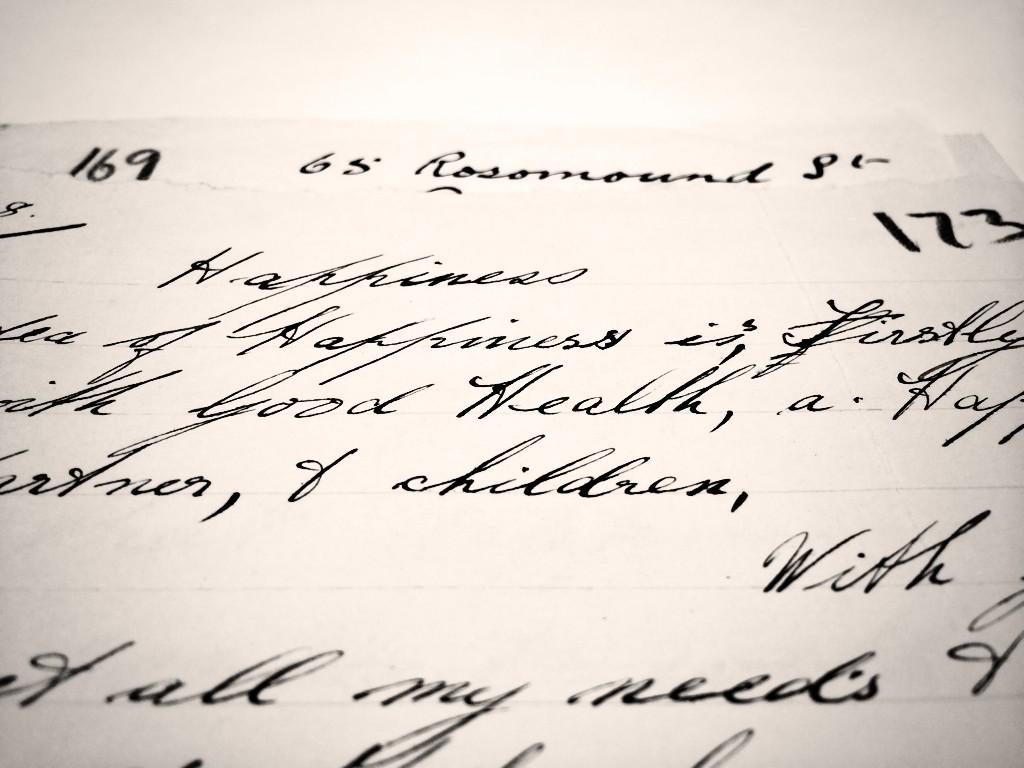 169 65 Rosomound St
8. 173
Happiness
of Happiness is, Firstly
Good Health, a. Hap
artner, & children,
With
all my needs &